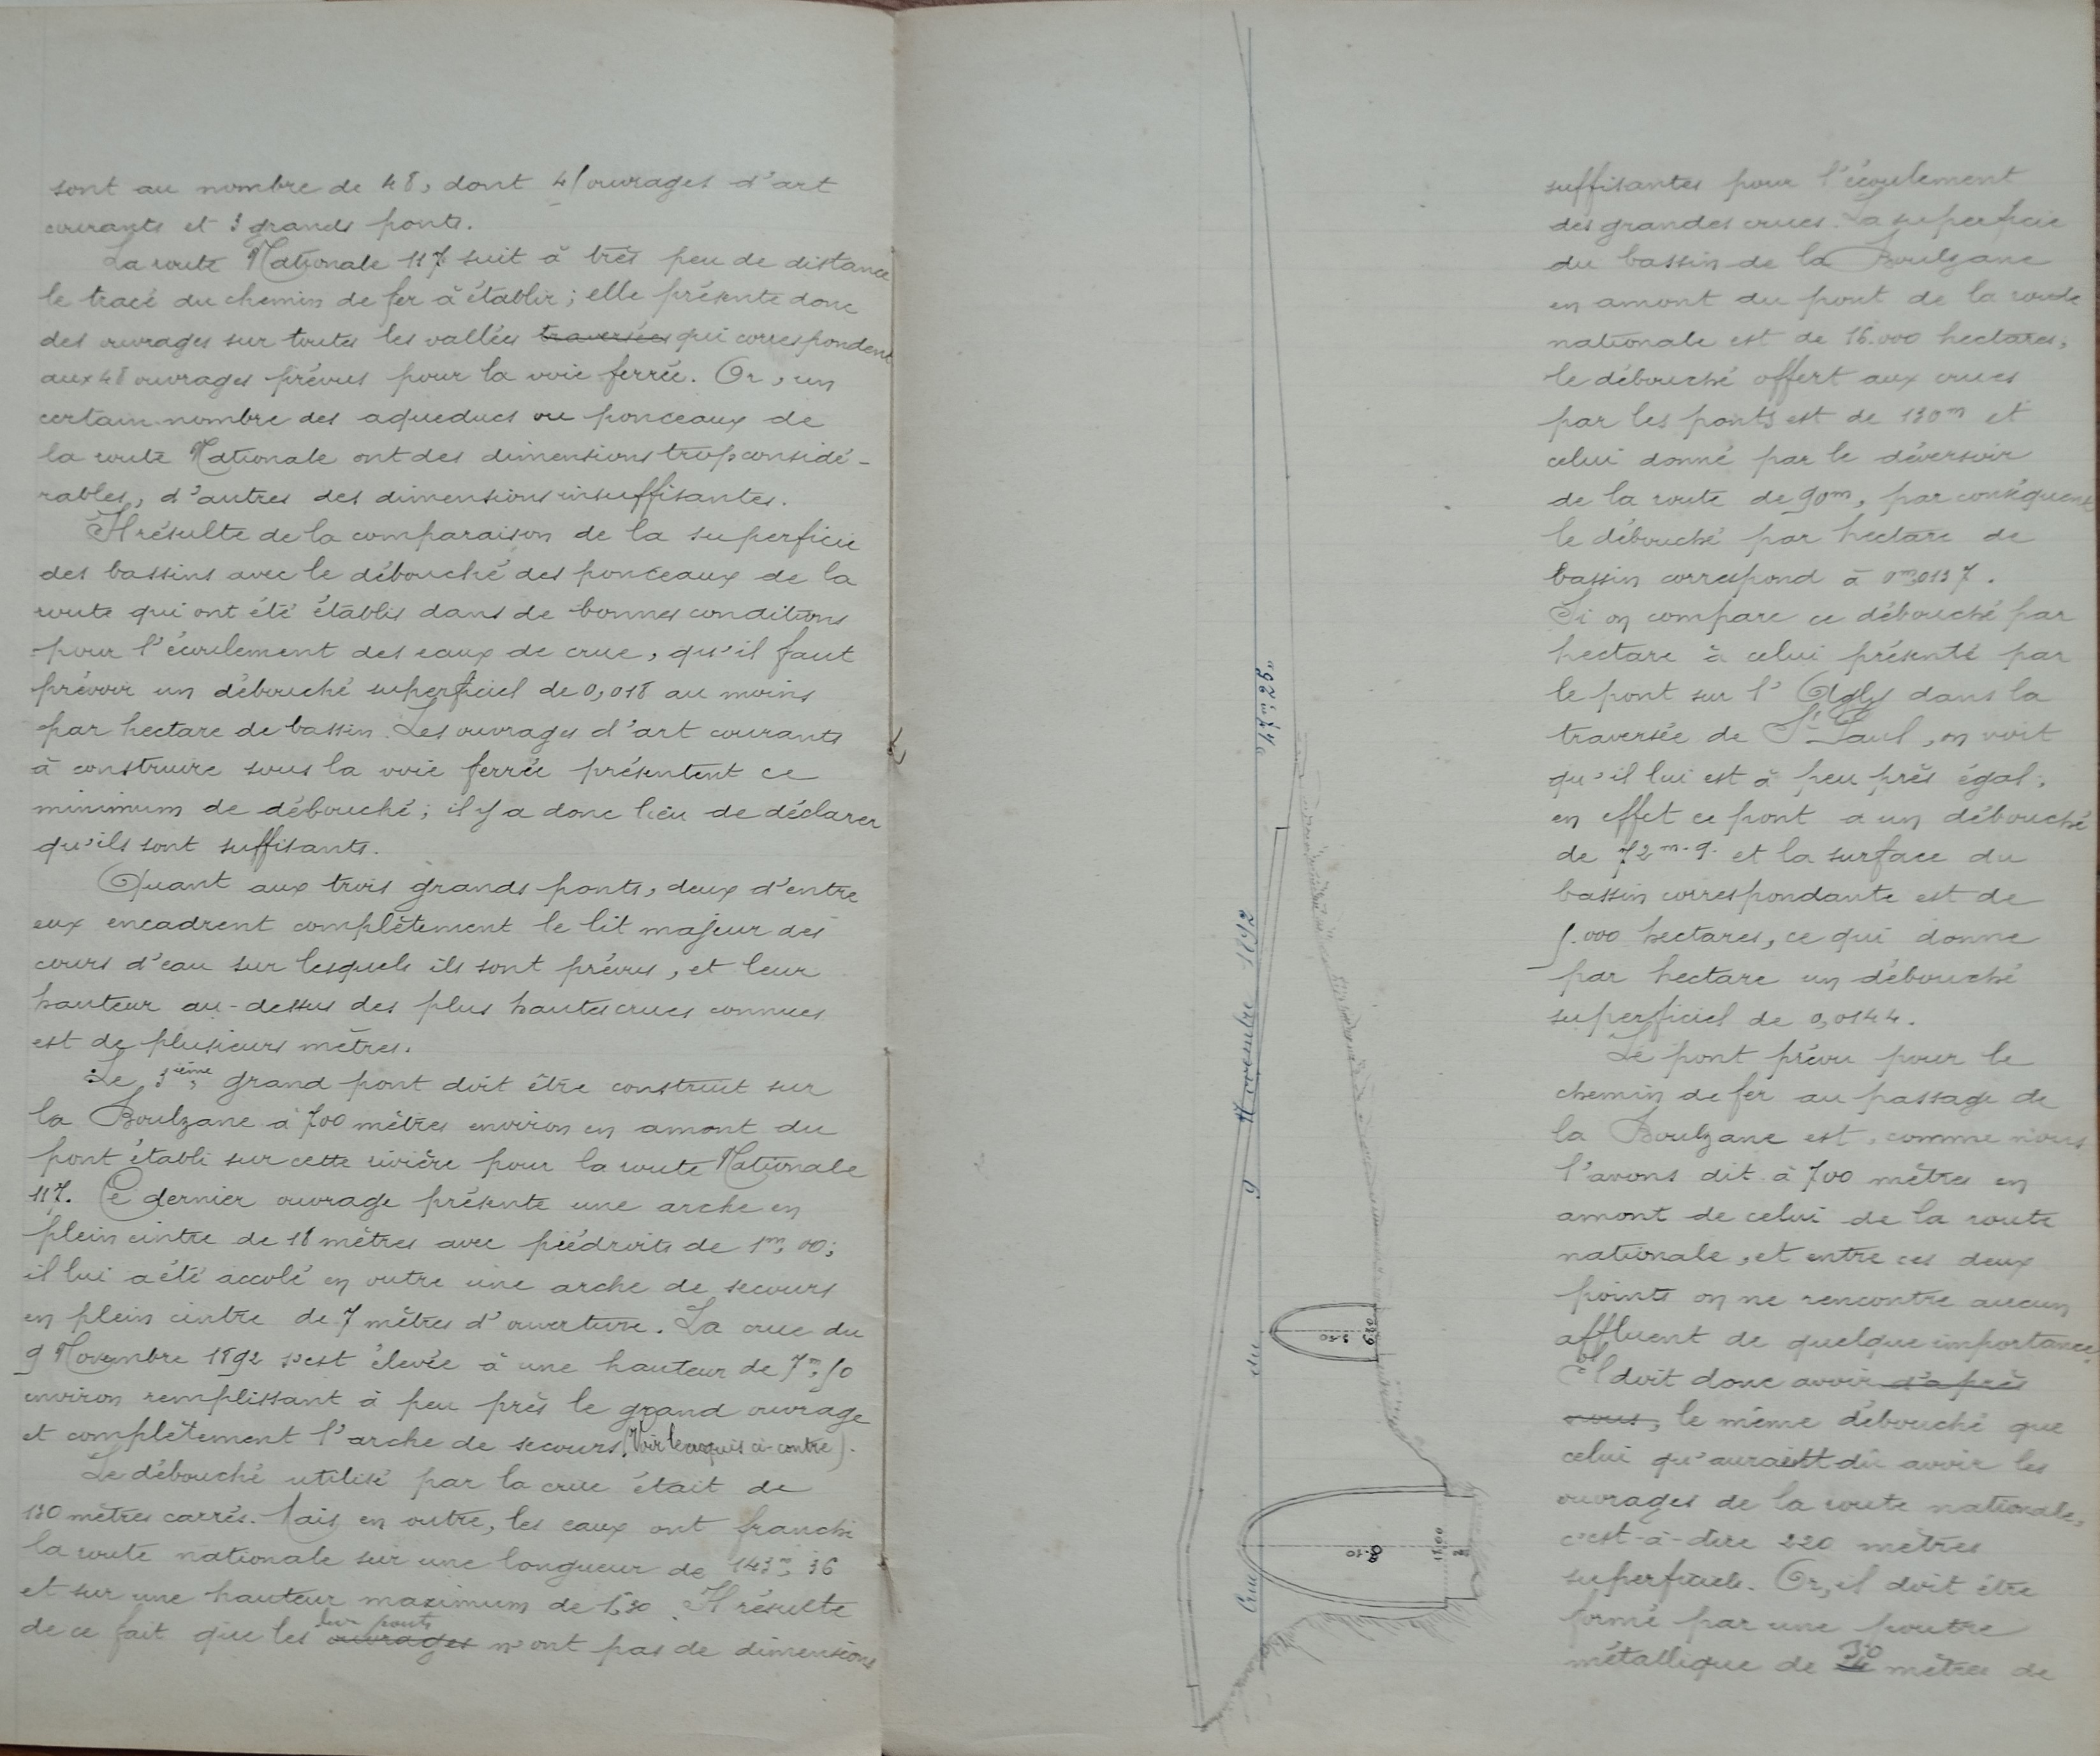 sont au nombre de 48, dont 45 ouvrages d'art
courants et 3 grands ponts.
La route Nationale 117 suit à très peu de distance
le tracé du chemin de fer à établir ; elle présente donc
des ouvrages sur toutes les vallées traversées qui correspondent
aux 48 ouvrages prévus pour la voie ferrée. Or, un
certain nombre des aqueducs ou ponceaux de
la route Nationale ont des dimensions trop considé-
rables, d'autres des dimensions insuffisantes.
Il résulte de la comparaison de la superficie
des bassins avec le débouché des ponceaux de la
route qui ont été établis dans de bonnes conditions
pour l'écoulement des eaux de crue, qu'il faut
prévoir un débouché superficiel de 0,018 au moins
par hectare de bassin. Les ouvrages d'art courants
à construire sous la voie ferrée présentent ce
minimum de débouché ; il y a donc lieu de déclarer
qu'ils sont suffisants.
Quant aux trois grands ponts, deux d'entre
eux encadrent complètement le lit majeur des
cours d'eau sur lesquels ils sont prévus, et leur
hauteur au-dessus des plus hautes crues connues
est de plusieurs mètres.
Le 3ième grand pont doit être construit sur
la Boulzane à 700 mètres environ en amont du
pont établi sur cette rivière pour la route Nationale
117. Ce dernier ouvrage présente une arche en
plein cintre de 18 mètres avec piédroits de 1m,00 ;
il lui a été accolé en outre une arche de secours
en plein cintre de 7 mètres d'ouverture. La crue du
9 Novembre 1892 s'est élevée à une hauteur de 7m,50
environ remplissant à peu près le grand ouvrage
et complètement l'arche de secours. (Voir le croquis ci-contre).
Le débouché utilisé par la crue était de
130 mètres carrés. Mais en outre, les eaux ont franchi
la route nationale sur une longueur de 143m,36
et sur une hauteur maximum de 1,30. Il résulte
de ce fait que les ouvrages deux ponts n'ont pas de dimensions
47m,25
Crue du 9 Novembre 1892
18,00
suffisantes pour l'écoulement
des grandes crues. La superficie
du bassin de la Boulzane
en amont du pont de la route
nationale est de 16.000 hectares,
le débouché offert aux crues
par les ponts est de 130m et
celui donné par le déversoir
de la route de 90m, par conséquent
le débouché par hectare de
bassin correspond à 0m,0137.
Si on compare ce débouché par
hectare à celui présenté par
le pont sur l'Agly dans la
traversée de St Paul, on voit
qu'il lui est à peu près égal ;
en effet ce pont a un débouché
de 72 m.q. et la surface du
bassin correspondante est de
5.000 hectares, ce qui donne
par hectare un débouché
superficiel de 0,0144.
Le pont prévu pour le
chemin de fer au passage de
la Boulzane est, comme nous
l'avons dit à 700 mètres en
amont de celui de la route
nationale, et entre ces deux
points on ne rencontre aucun
affluent de quelque importance.
Il doit donc avoir d'après
nous, le même débouché que
celui qu'auraient dû avoir les
ouvrages de la route nationale,
c'est-à-dire 220 mètres
superficiels. Or, il doit être
formé par une poutre
métallique de 30 mètres de